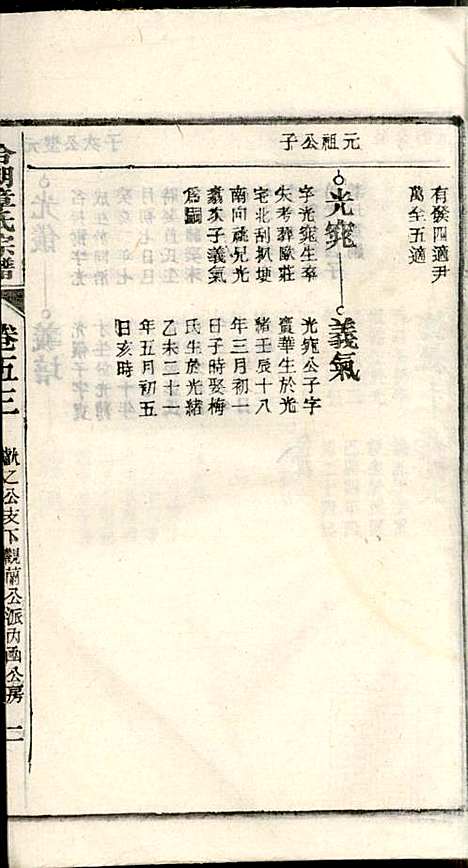 元祖公子
有傑四適尹
萬全五適
光霓
字光霓生卒
失考葬陳莊
宅北刮扒埂
南向疏兄光
次子義氣
爲嗣
義氣
光霓公子字
寶華生於光
緒壬辰十八
年三月初一
日子時娶梅
氏生於光緒
乙未二十一
年五月初五
日亥時
章氏宗譜
卷五三
猷之公支下觀蘭公派內函公房